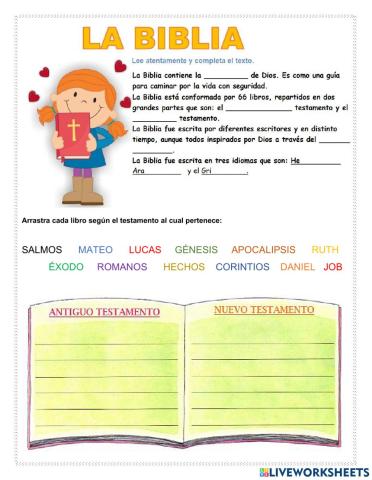 LA BIBLIA
Lee atentamente y completa el texto.
La Biblia contiene la _________ de Dios. Es como una guía
para caminar por la vida con seguridad.
La Biblia está conformada por 66 libros, repartidos en dos
grandes partes que son: el _____________ testamento y el
_________ testamento.
La Biblia fue escrita por diferentes escritores y en distinto
tiempo, aunque todos inspirados por Dios a través del ______
________.
La Biblia fue escrita en tres idiomas que son: He________
Ara_______ y el Gri_______.
Arrastra cada libro según el testamento al cual pertenece:
SALMOS MATEO LUCAS GÉNESIS APOCALIPSIS RUTH
ÉXODO ROMANOS HECHOS CORINTIOS DANIEL JOB
ANTIGUO TESTAMENTO NUEVO TESTAMENTO
LIVEWORKSHEETS